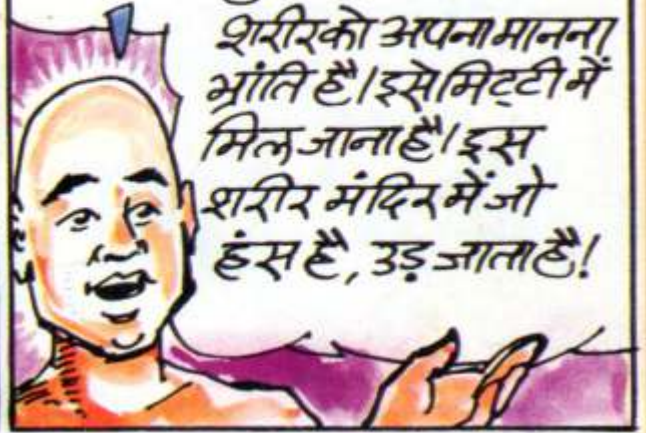 शरीर को अपना मानना
भ्रांति है। इसे मिट्टी में
मिल जाना है। इस
शरीर मंदिर में जो
हंस है, उड़ जाता है!